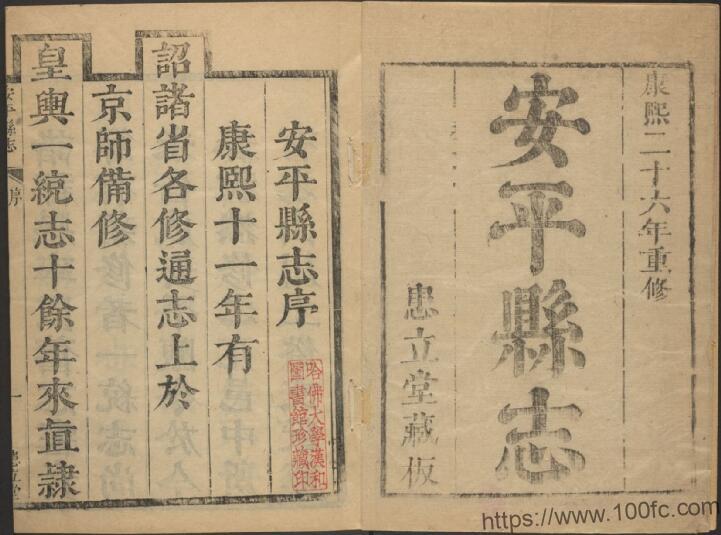 康熙二十六年重修
安平縣志
忠立堂藏板
安平縣志序
康熙十一年有
詔諸省各修通志上於
京師備修
皇輿一統志十餘年來直隸
安平縣志
序
一
忠立堂
哈佛大學漢和
圖書館珍藏印
https://www.100fc.com